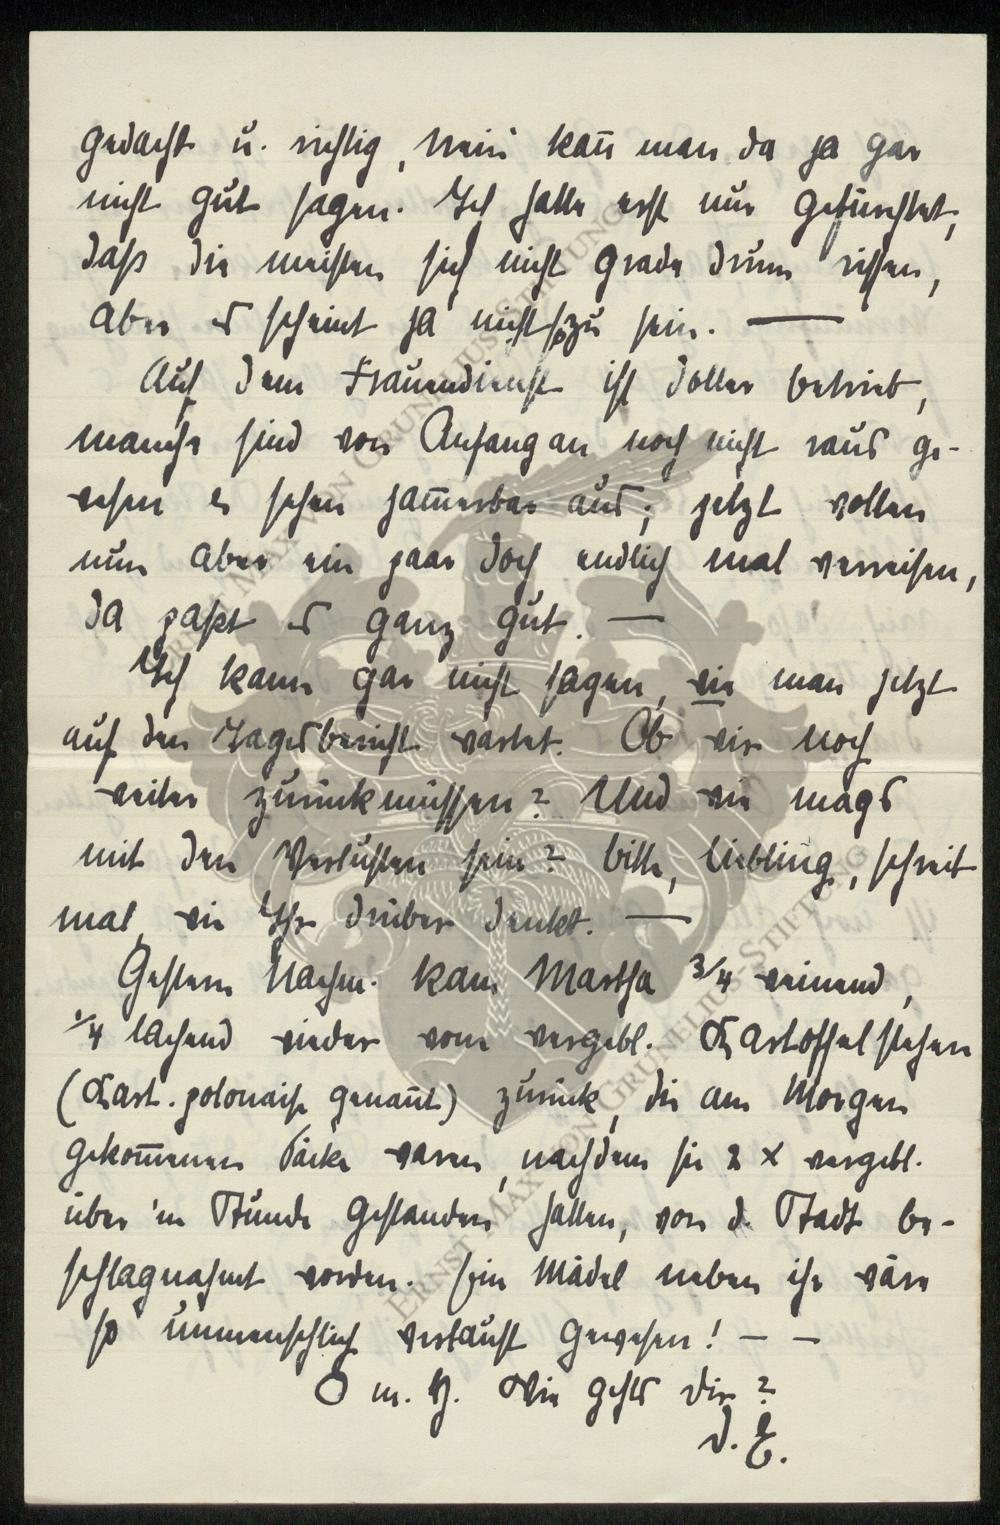 gedacht u. richtig, nein kan̄ man da ja gar
nicht gut sagen. Ich hatte erst nur gefürchtet,
daß die meisten sich nicht grade drum rissen,
aber es scheint ja nicht so zu sein. —
Auf dem Frauendienst ist doller betrieb,
manche sind von Anfang an noch nicht raus ge-
wesen u sehen jam̄erbar aus; jetzt wollen
nun aber ein paar doch endlich mal verreisen,
da paßt es ganz gut. —
Ich kann gar nicht sagen, wie man jetzt
auf den Tagesbericht wartet. Ob wir noch
weiter zurückmüssen? Und wie mags
mit den Verlusten sein? bitte, Liebling, schreib
mal, wie Ihr drüber denkt. —
Gestern Nachm. kam Martha 3/4 weinend,
1/4 lachend wieder vom vergebl. Kartoffelstehen
(Kart. polonaise genan̄t) zurück, die am Morgen
gekom̄enen Säcke waren, nachdem sie 2 x vergebl.
über 'n Stunde gestanden hatten, von d. Stadt be-
schlagnahmt worden. Ein Mädel neben ihr wäre
so unmenschlich verlaust gewesen! — —
O m. H. Wie gehts Dir?
D. E.
ERNST MAX VON GRUNELIUS-STIFTUNG
ERNST MAX VON GRUNELIUS-STIFTUNG